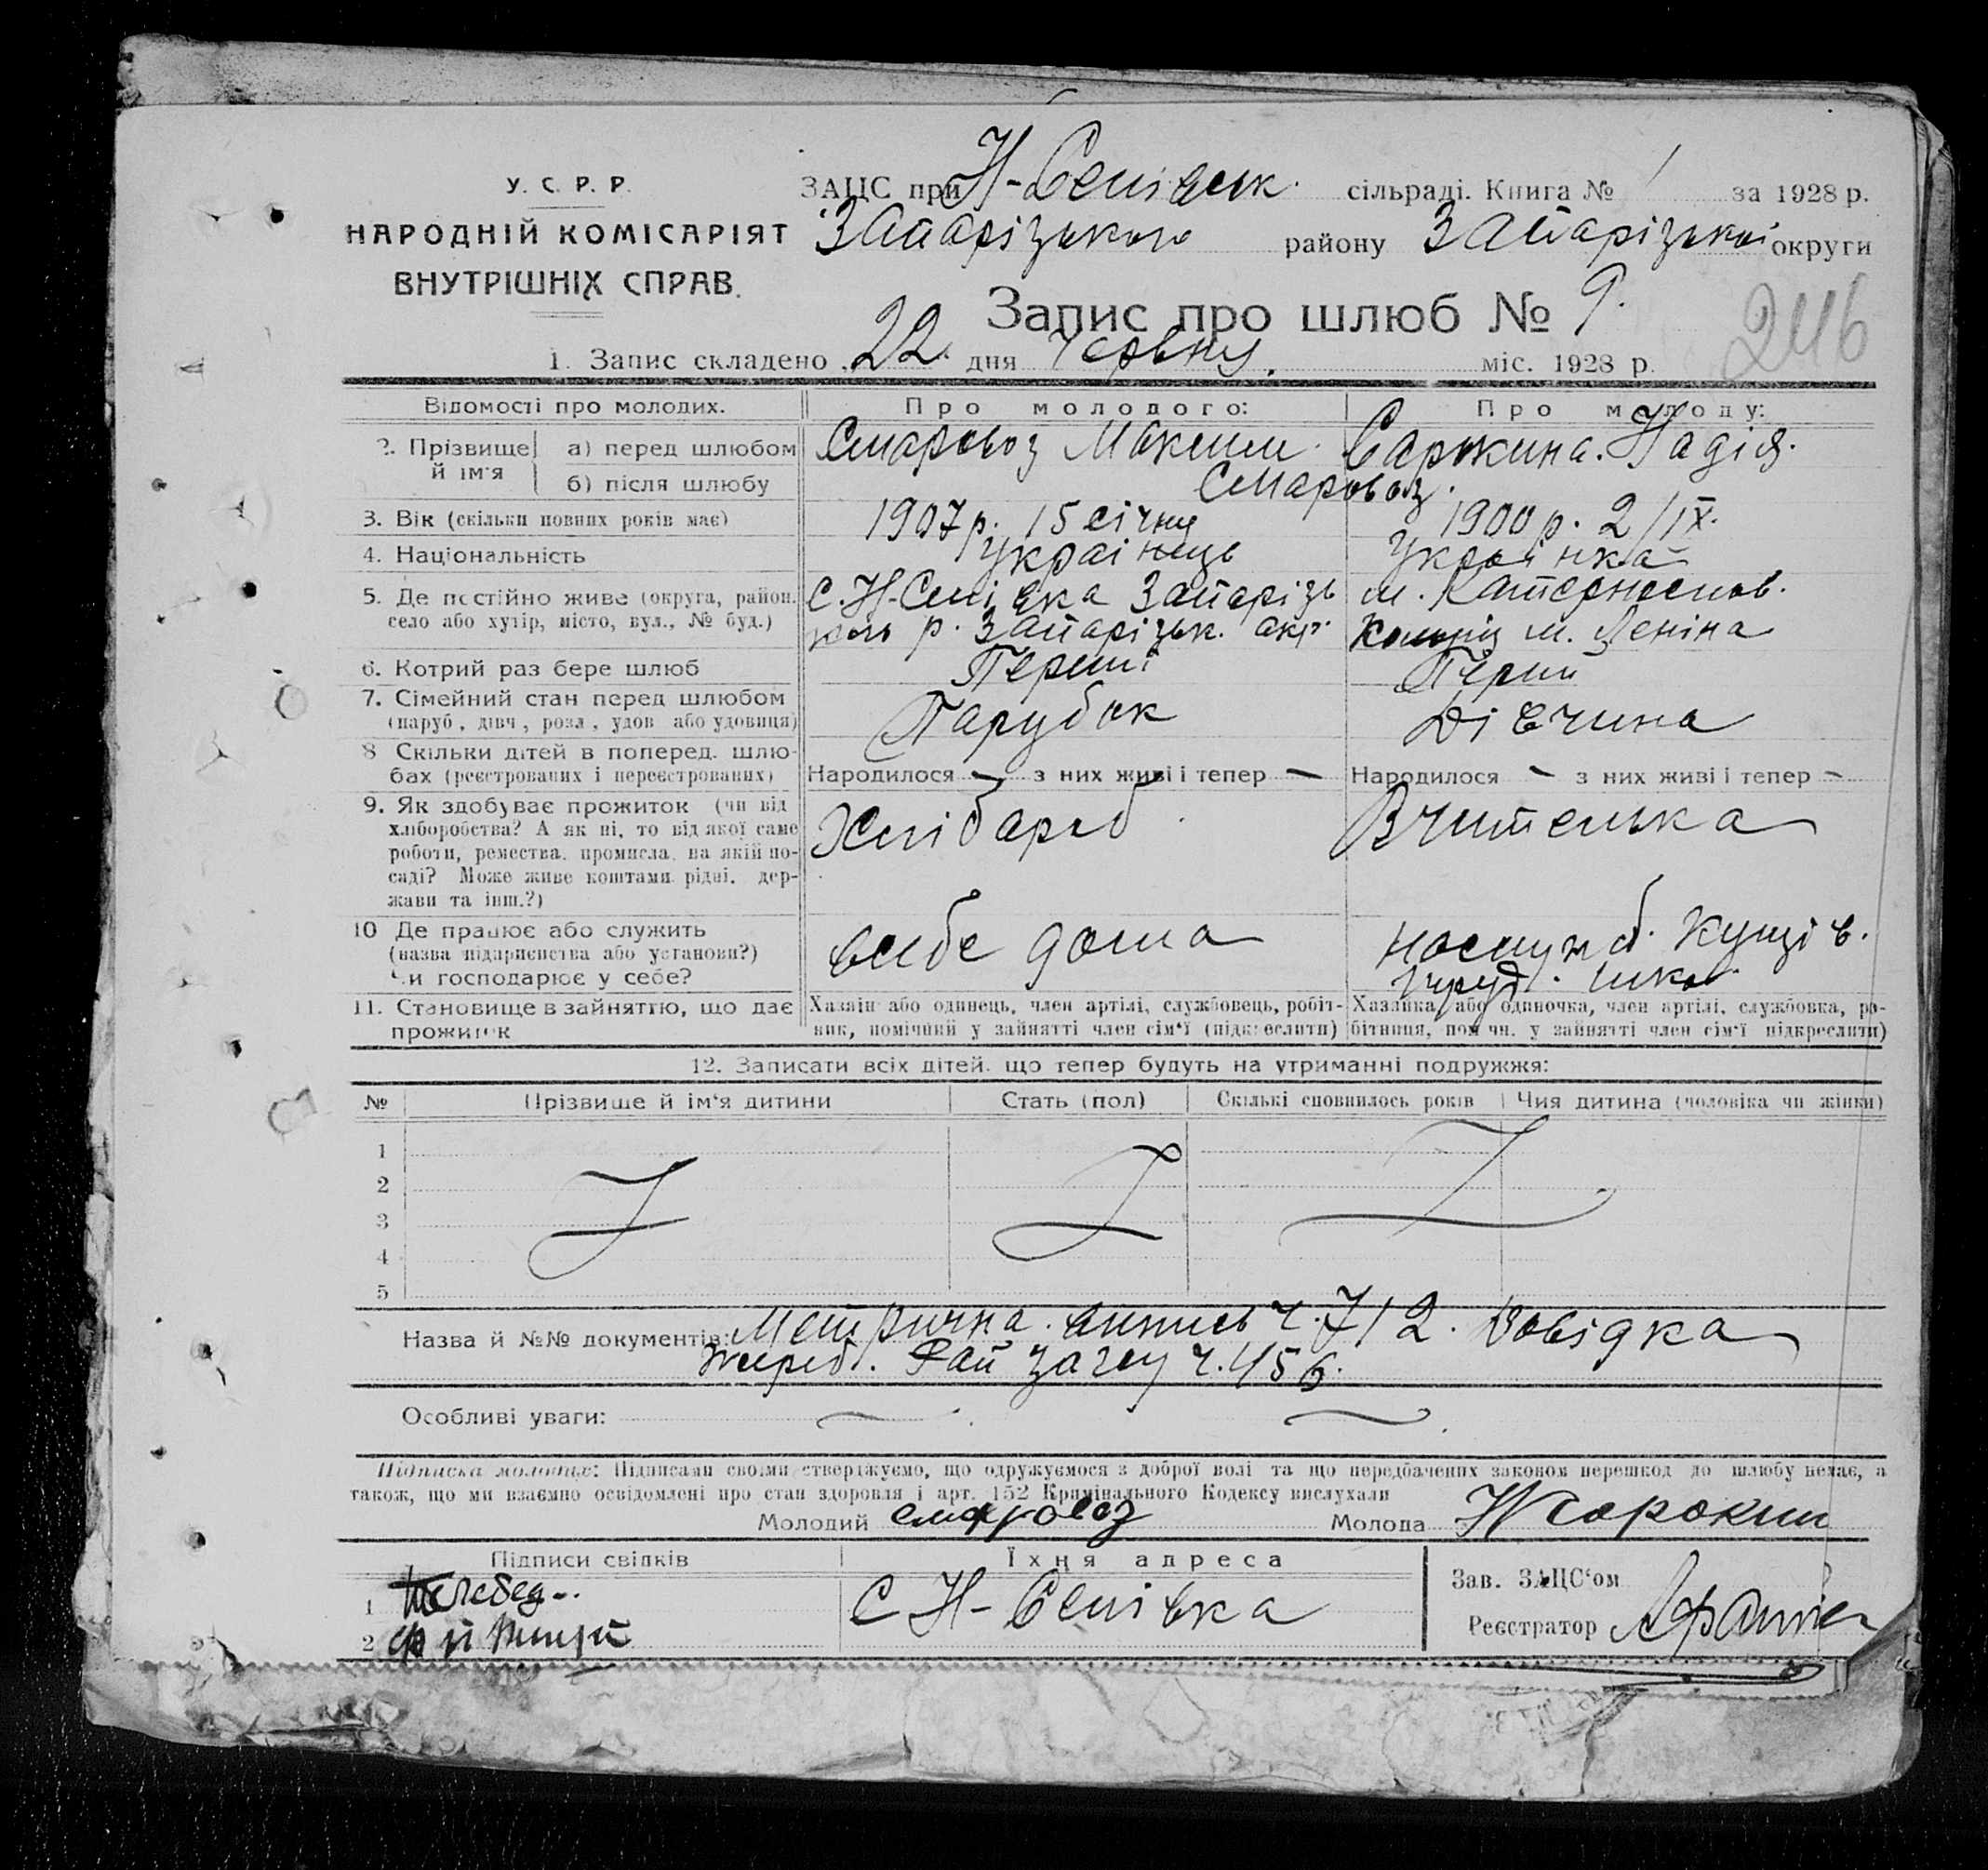 У. С. Р. Р.
НАРОДНІЙ КОМІСАРІЯТ
ВНУТРІШНІХ СПРАВ.
ЗАЦС при сільраді. Книга № 1 за 1928 р.
Запарізького району Запарізької округи
Запис про шлюб № 9.
246
1. Запис складено 22 дня Червну міс. 1928 р.
Відомості про молодих. Про молодого: Про молоду:
2. Прізвище й ім'я а) перед шлюбом Старовоз Максим Сарокина Надія.
б) після шлюбу Старовоз.
3. Вік (скільки повних років має) 1907 р. 15 січну 1900 р. 2/IX.
4. Національність Украінець Украінка
5. Де постійно живе (округа, район, с. Н- Запарізь м.
село або хутір, місто, вул., № буд.) р. Запарізьк. акр. м. Леніна
6. Котрий раз бере шлюб Перши Перши
7. Сімейний стан перед шлюбом
(паруб, дівч, розл, удов або удовиця) Парубок Дівчина
8 Скільки дітей в поперед. шлю-
бах (реєстрованих і переєстрованих) Народилося — з них живі і тепер — Народилося — з них живі і тепер —
9. Як здобуває прожиток (чи від
хліборобства? А як ні, то від якої саме Хлібароб Вчителька
роботи, ремества, промисла, на якій по-
саді? Може живе коштами рідні, дер-
жави та інш.?)
10 Де працює або служить
(назва підприємства або установи?) всебе дома
Чи господарює у себе?
11. Становище в зайняттю, що дає Хазаїн або одинець, член артілі, службовець, робіт- Хазяйка або одиночка, член артілі, службовка, ро-
прожиток ник, помічний у зайнятті член сім'ї (підкреслити) бітниця, пом чн. у зайнятті член сім'ї підкреслити)
12. Записати всіх дітей, що тепер будуть на утриманні подружжя:
№ Прізвище й ім'я дитини Стать (пол) Скількі сповнилось років Чия дитина (чоловіка чи жінки)
1
2
3
4
5
Назва й №№ документів: Метрична випись ч. 712. Довідка
ч. 456.
Особливі уваги:
Підписка молодих: Підписами своїми стверджуємо, що одружуємося з доброї волі та що передбачених законом перешкод до шлюбу немає, а
також, що ми взаємно освідомлені про стан здоровля і арт. 152 Крамінального Кодексу вислухали
Молодий Старовоз Молода Н Сорокин
Підписи свідків Їхня адреса
1 С Н- Зав. ЗАЦС'ом
2 Реєстратор